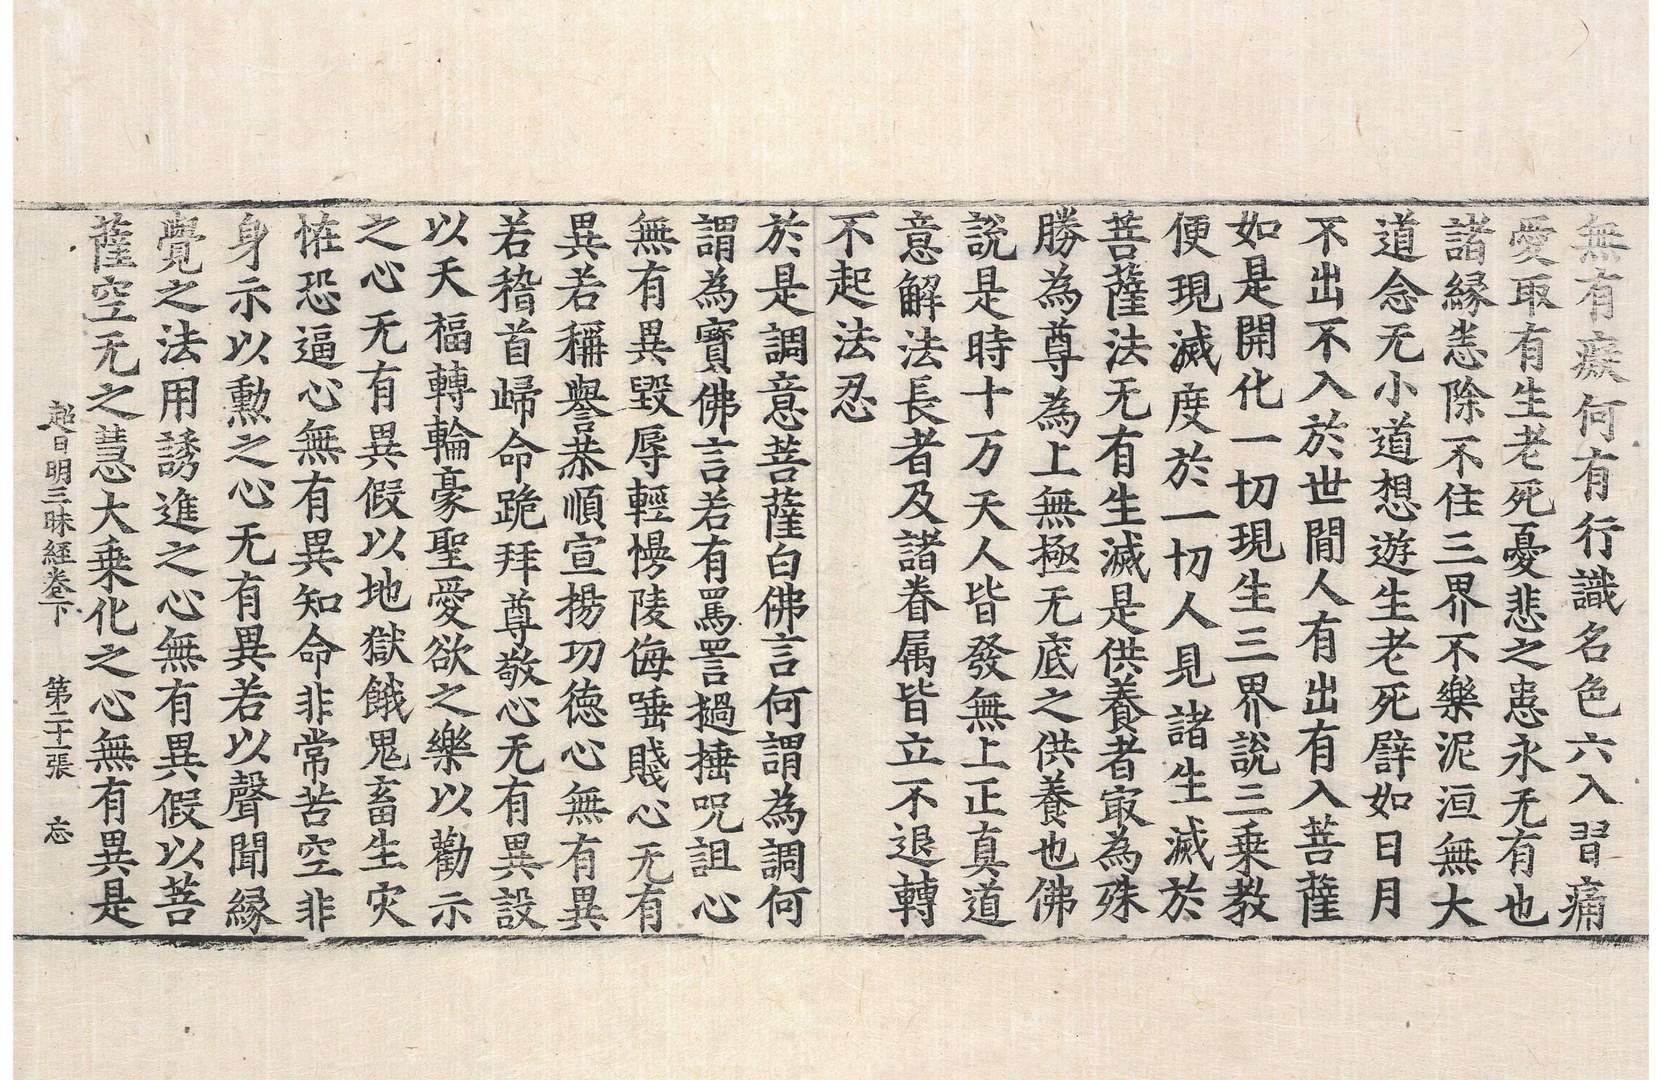 無有癡何有行識名色六入習痛
愛取有生老死憂悲之患永无有也
諸縁恙除不住三界不樂泥洹無大
道念无小道想遊生老死譬如日月
不出不入於世間人有出有入菩薩
如是開化一切現生三界說三乗教
便現滅度於一切人見諸生滅於
菩薩法无有生滅是供養者㝡為殊
勝為尊為上無極无底之供養也佛
說是時十万天人皆發無上正真道
意解法長者及諸眷属皆立不退轉
不起法忍
於是調意菩薩白佛言何謂為調何
謂為寳佛言若有罵詈撾捶呪詛心
無有異毀辱輕慢陵侮唾賤心无有
異若稱譽恭順宣揚功徳心無有異
若稽首歸命跪拜尊敬心无有異設
以天福轉輪豪聖愛欲之樂以勸示
之心无有異假以地獄餓鬼畜生灾
恠恐逼心無有異知命非常苦空非
身示以勲之心无有異若以聲聞縁
覺之法用誘進之心無有異假以菩
薩空无之慧大乗化之心無有異是
超日明三昧經卷下　第二十一張　忘